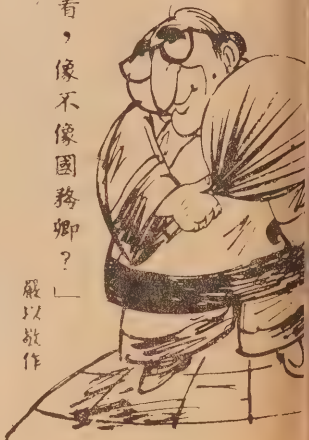 看，像不像國務卿？」
嚴以敬作